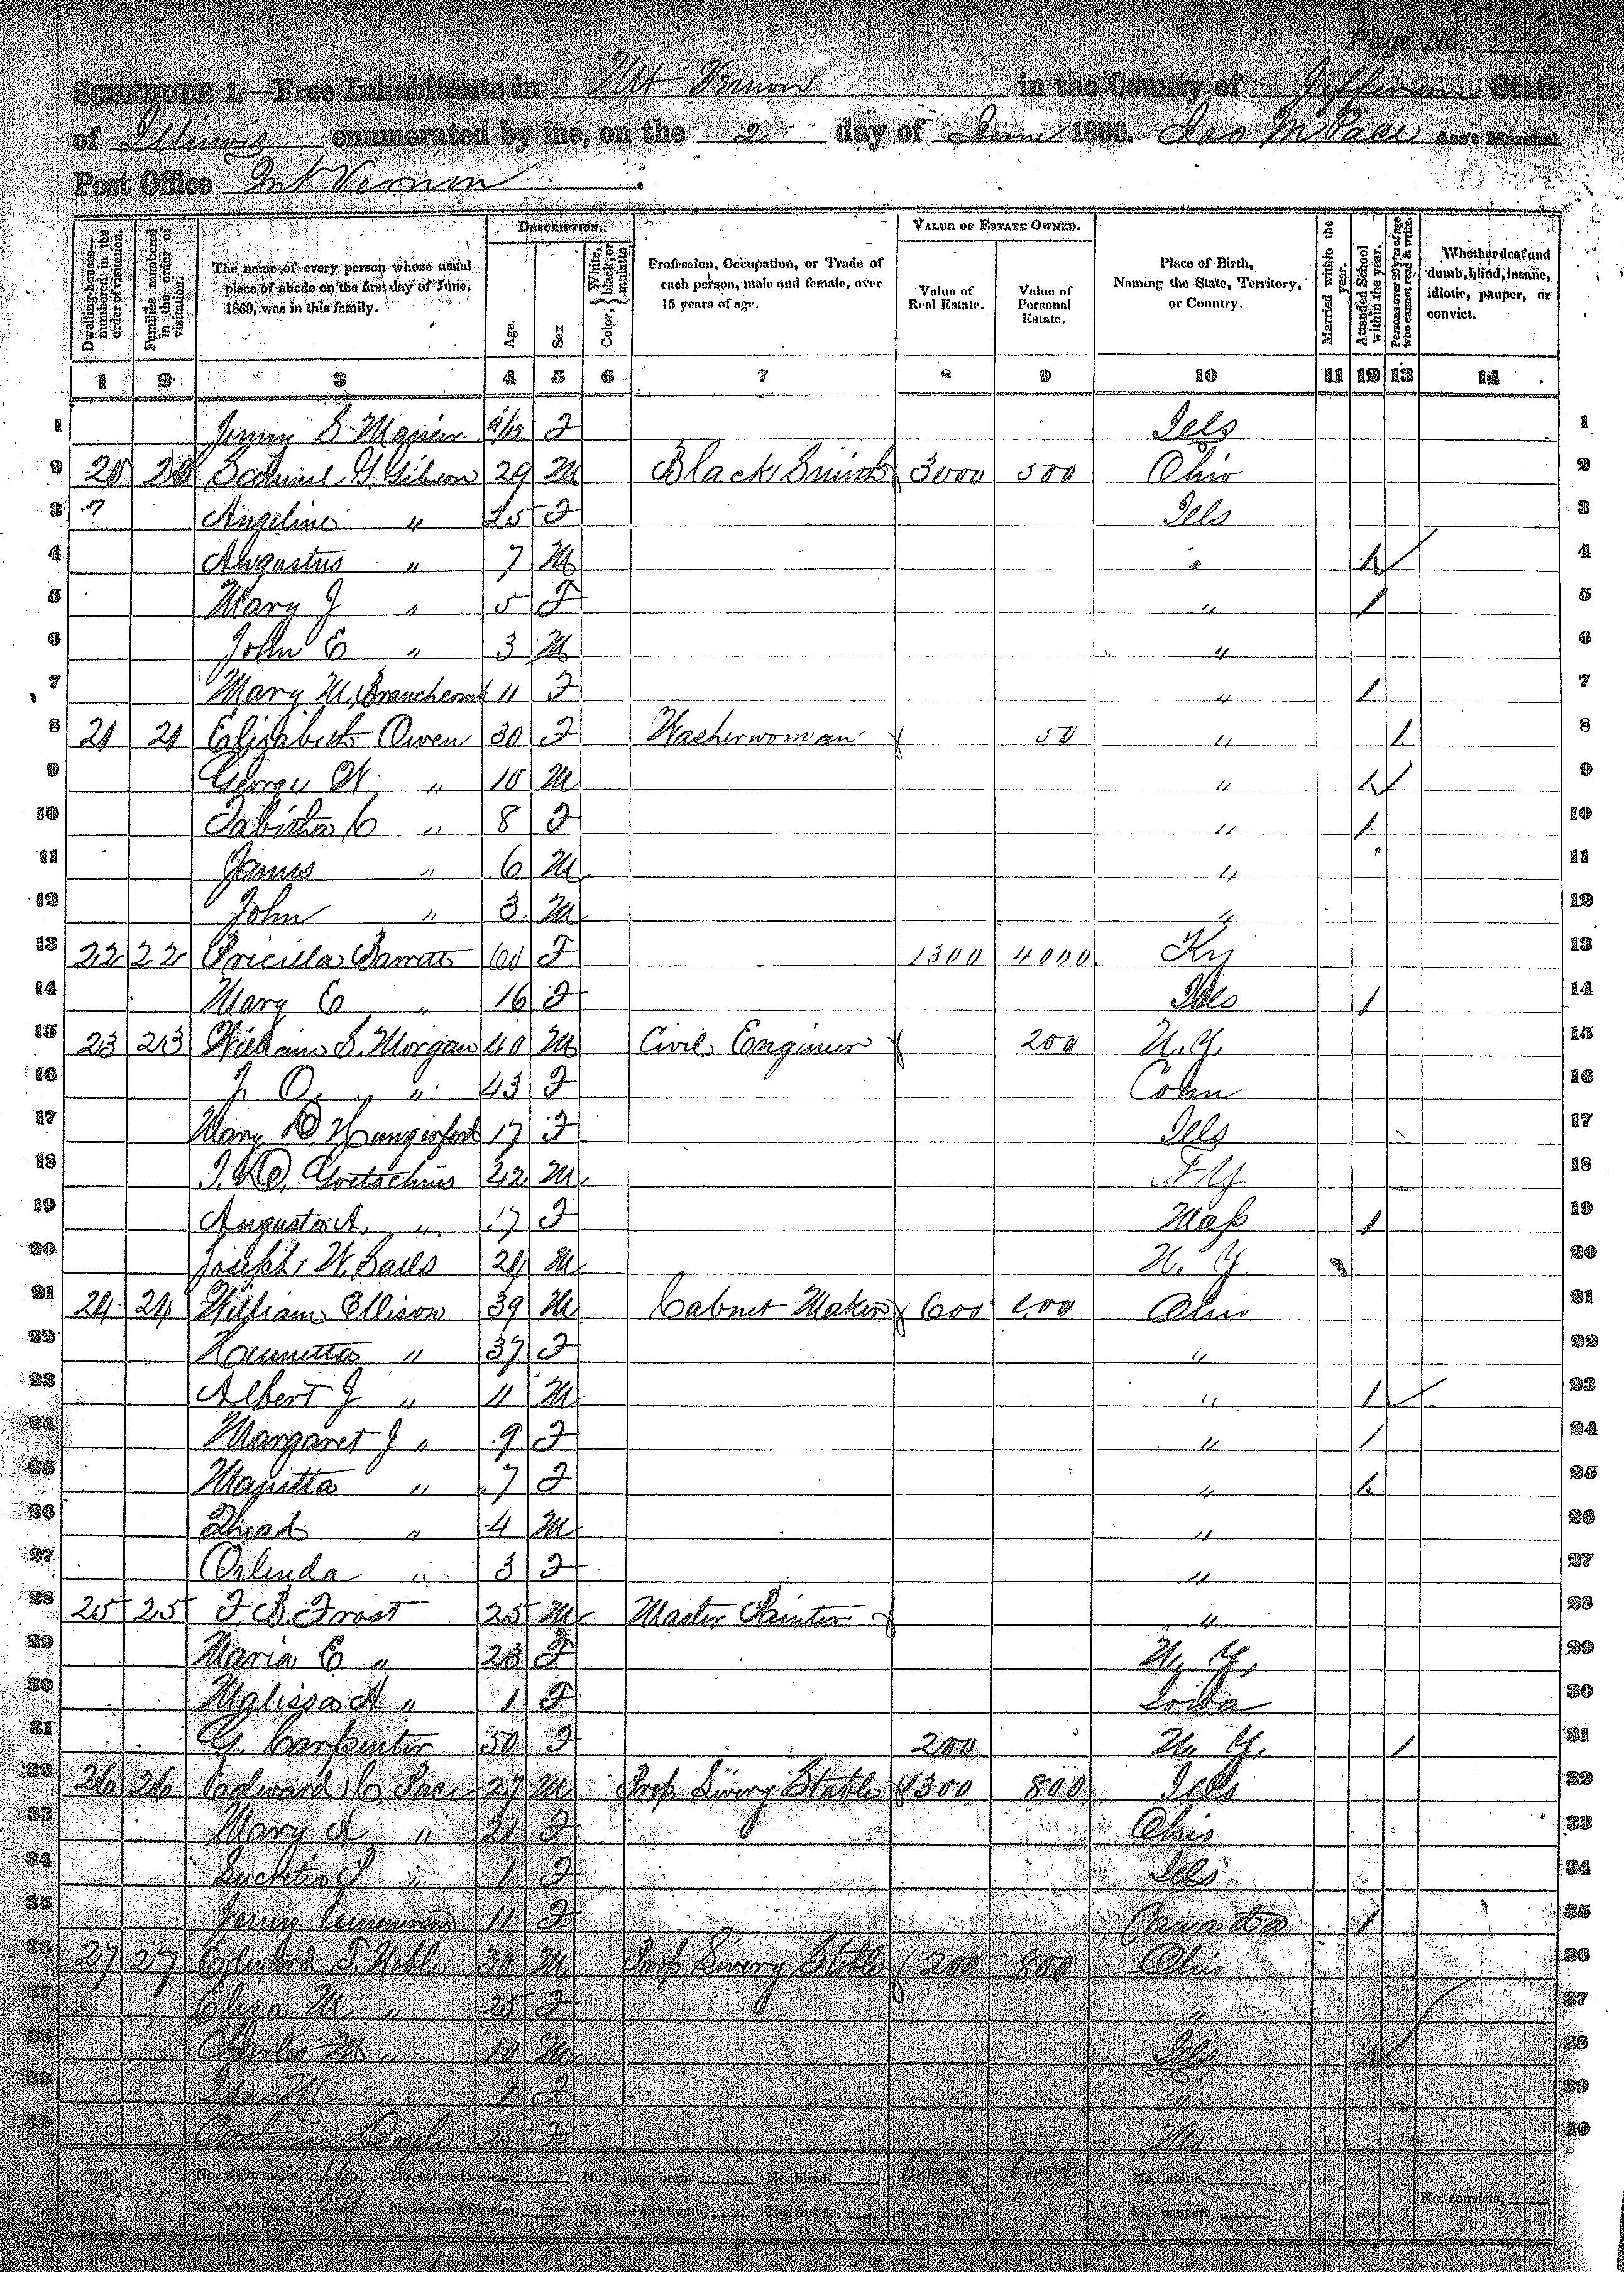 Page No. 4
SCHEDULE 1.—Free Inhabitants in Mt Vernon in the County of Jefferson State
of Illinois enumerated by me, on the 2 day of June 1860. Jas M Pace Ass't Marshal
Post Office Mt Vernon.
Dwelling-houses—numbered in the order of visitation. Families numbered in the order of visitation. The name of every person whose usual place of abode on the first day of June, 1860, was in this family. DESCRIPTION. Age. Sex Color, White, black, or mulatto Profession, Occupation, or Trade of each person, male and female, over 15 years of age. VALUE OF ESTATE OWNED. Value of Real Estate. Value of Personal Estate. Place of Birth, Naming the State, Territory, or Country. Married within the year. Attended School within the year. Persons over 20 y'rs of age who cannot read & write. Whether deaf and dumb, blind, insane, idiotic, pauper, or convict.
1 2 3 4 5 6 7 8 9 10 11 12 13 14
1 Jenny S 4/12 F Ills 1
2 20 20 G. Gibson 29 M Black Smith 3000 500 Ohio 2
3 Angeline " 25 F Ills 3
4 Augustus " 7 M " 1 4
5 Mary J " 5 F " 1 5
6 John E " 3 M " 6
7 Mary M. Branchcomb 11 F " 1 7
8 21 21 Elizabeth Owen 30 F Washerwoman 50 " 1 8
9 George W. " 10 M " 1 9
10 Tabitha C " 8 F " 1 10
11 James " 6 M " 11
12 John " 3 M " 12
13 22 22 Pricilla Barrett 60 F 1300 4000 Ky 13
14 Mary E " 16 F Ills 1 14
15 23 23 William S. Morgan 40 M Civil Engineer 200 N.Y. 15
16 J. O. " 43 F Conn 16
17 Mary D. Hungerford 17 F Ills 17
18 Goetschius 42 M N Y 18
19 Augusta A. " 17 F Mass 1 19
20 Joseph W. 24 M N. Y. 20
21 24 24 William Ellison 39 M Cabnet Maker 600 Ohio 21
22 " 37 F " 22
23 Albert J " 11 M " 1 23
24 Margaret J " 9 F " 1 24
25 " 7 F " 1 25
26 Thead " 4 M " 26
27 Orlinda " 3 F " 27
28 25 25 F. B. Frost 25 M Master Painter " 28
29 Maria E " 23 F N. Y. 29
30 Malissa A " 1 F Iowa 30
31 G. Carpenter 50 F 200 N. Y. 1 31
32 26 26 Edward C Pace 27 M Prop Livery Stable 1300 800 Ills 32
33 Mary A " 21 F Ohio 33
34 Lucretia P " 1 F Ills 34
35 Jenny 11 F Canada 1 35
36 27 27 Edward T. Noble 30 M Prop Livery Stable 200 800 Ohio 36
37 Eliza M " 25 F " 37
38 Charles M " 10 M Ills 1 38
39 Ida M " 1 F " 39
40 Catherine Doyle 25 F 40
No. white males, 16 No. colored males, No. foreign born, No. blind, 6600 6450 No. idiotic,
No. white females, 24 No. colored females, No. deaf and dumb, No. insane, No. paupers, No. convicts,